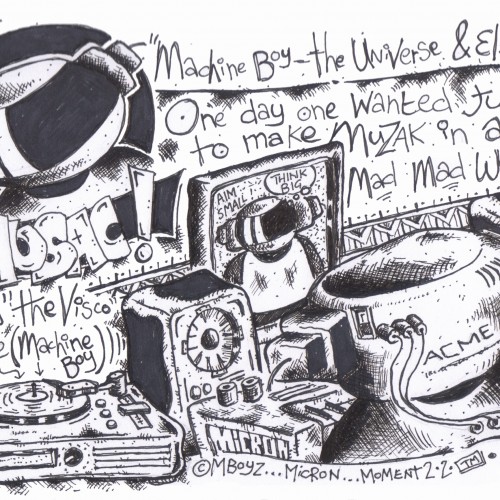 "Machine Boy-the Universe & El
One day one wanted Ju
to make Muzak in a
Mad Mad W
AIM
SMALL!
THINK
BIG
MUSAC!
"the Visco
(Machine
Boy)))
ACME
MICRON
©MBoyz...Micron...Moment 2.2. TM